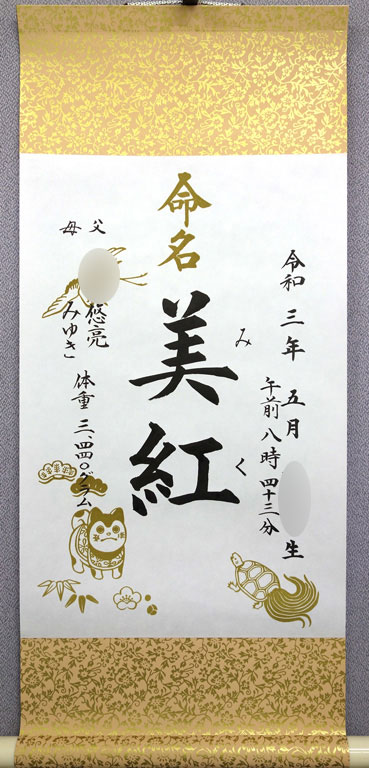 令和三年五月 生
午前八時四十三分
命名
美紅
みく
父 悠亮
母 みゆき
体重 三、四四〇グラム